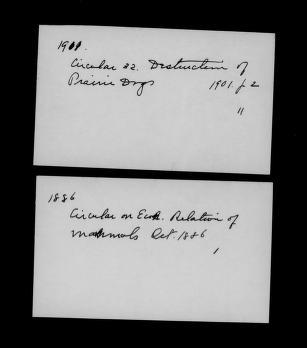 1901.
Circular 32. Destruction of
Prairie Dogs 1901. p 2
11
1886
Circular on Econ. Relation of
Mammals Oct. 1886
1